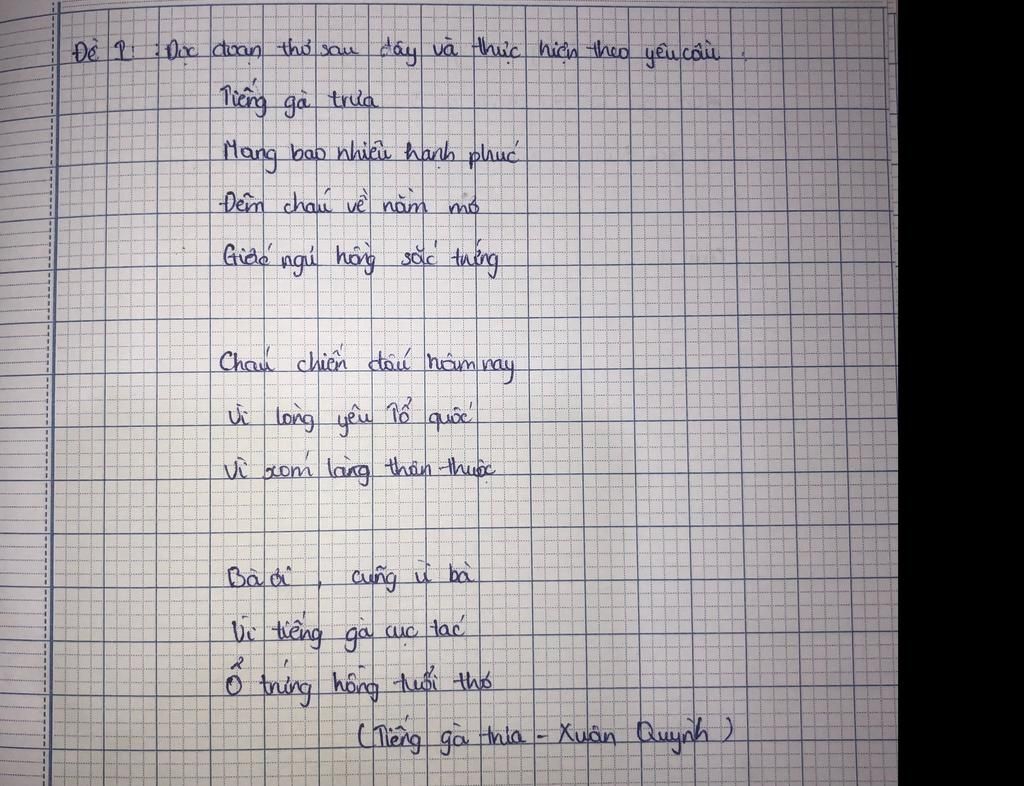 Đề 1: : Đọc đoạn thơ sau đây và thực hiện theo yêu cầu :
Tiếng gà trưa
Mang bao nhiêu hạnh phúc
Đêm cháu về nằm mơ
Giấc ngủ hồng sắc trứng
Cháu chiến đấu hôm nay
Vì lòng yêu Tổ quốc
Vì xóm làng thân thuộc
Bà ơi , cũng vì bà
Vì tiếng gà cục tác
Ổ trứng hồng tuổi thơ
( Tiếng gà trưa - Xuân Quỳnh )